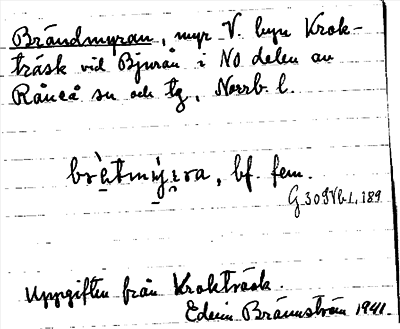 Brändmyran, myr V. byn Krok-
träsk vid Bjurån i NO delen av
Råneå sn och tg, Norrb. l.
bf. fem.
Uppgiften från Krokträsk.
Edvin Brännström 1941.